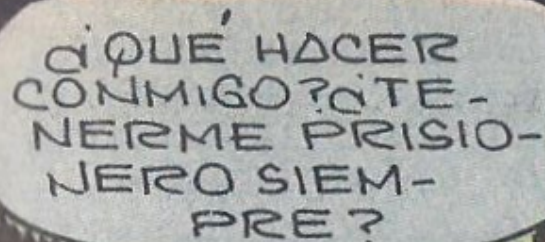 ¿QUÉ HACER
CONMIGO? ¿TE-
NERME PRISIO-
NERO SIEM-
PRE?